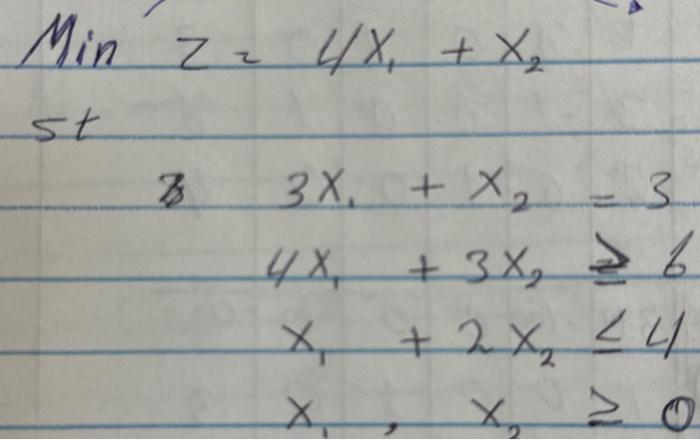 Min Z = 4X₁ + X₂
st
3X₁ + X₂ = 3
4X₁ + 3X₂ ≥ 6
X₁ + 2X₂ ≤ 4
X₁, X₂ ≥ 0